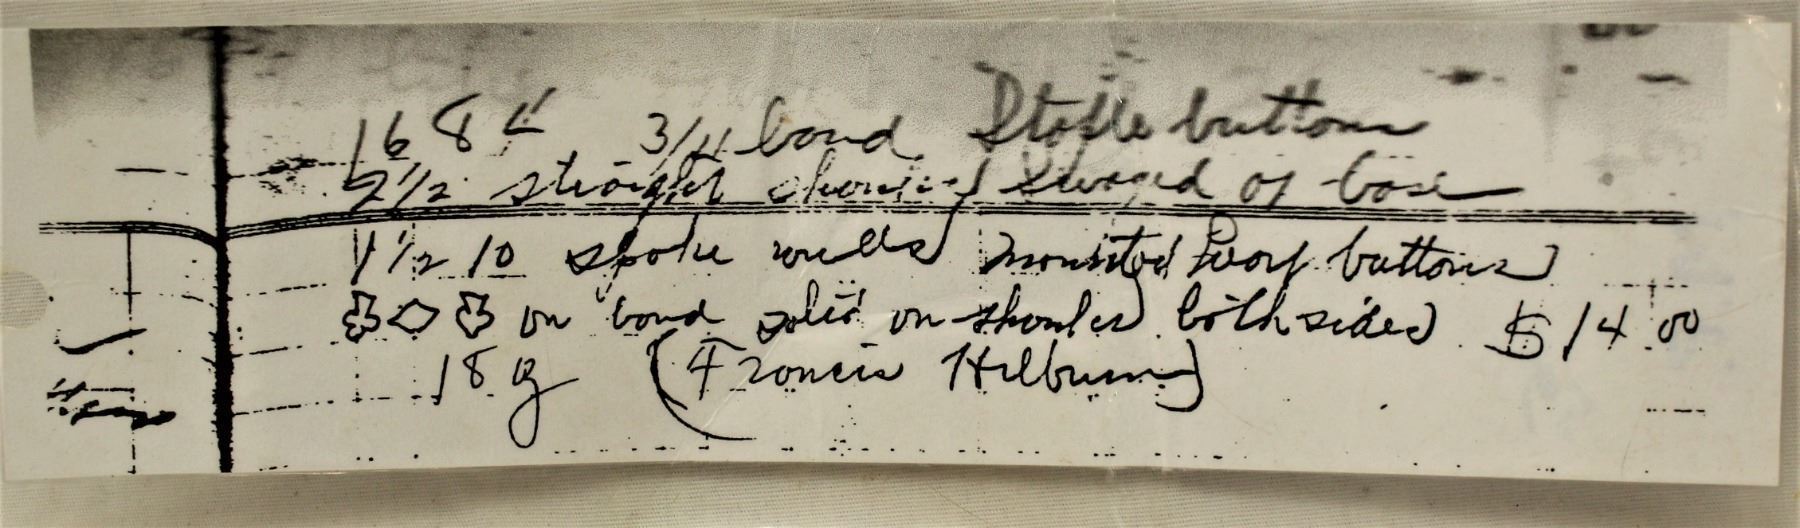 168 3/4 band Staple buttons
2 1/2 straight shanks Swaged of base
1 1/2 10 spoke wells mounted Ivory buttons
on band solid on shoulder both sides $14.00
18 g (Francis Hilburn)